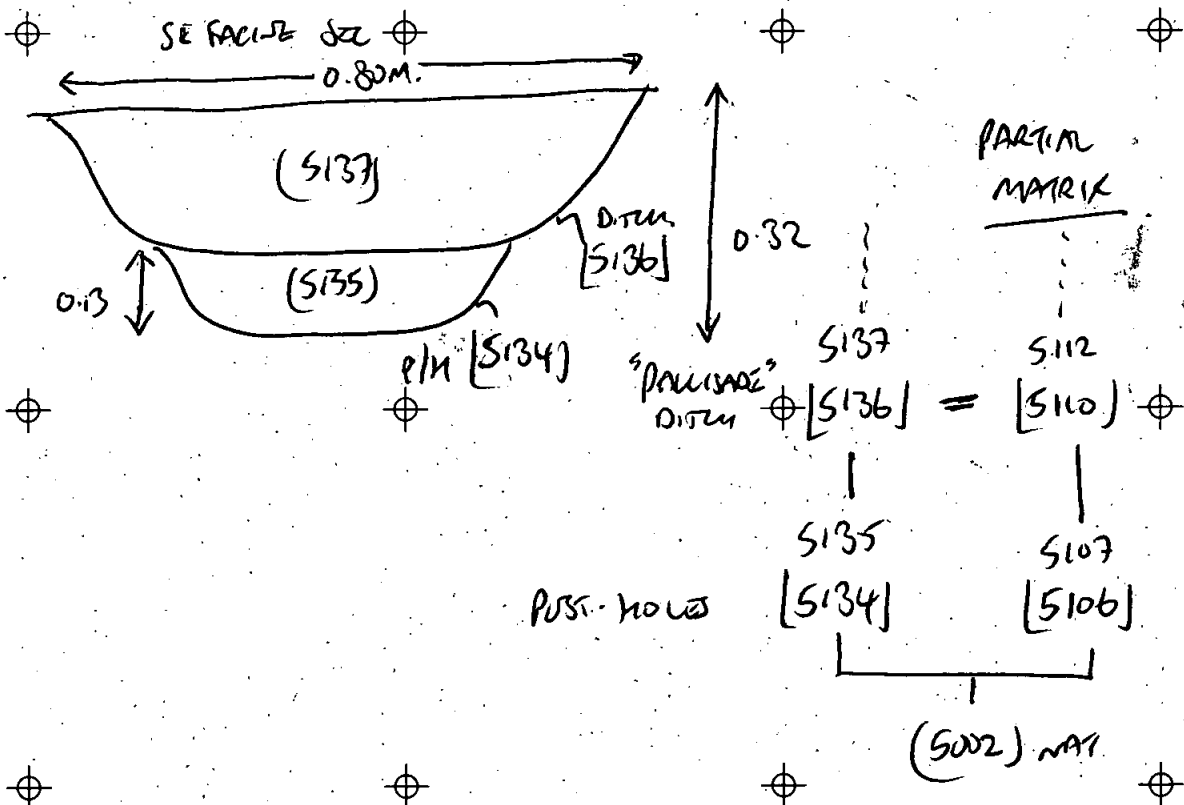 SE FACING SEC
0.80M.
(5137)
DITCH
[5136]
0.32
(5135)
0.13
P/H [5134]
PARTIAL
MATRIX
5137 5112
"PALLISADE"
DITCH [5136] = [5110]
5135 5107
POST-HOLES [5134] [5106]
(5002) NAT.